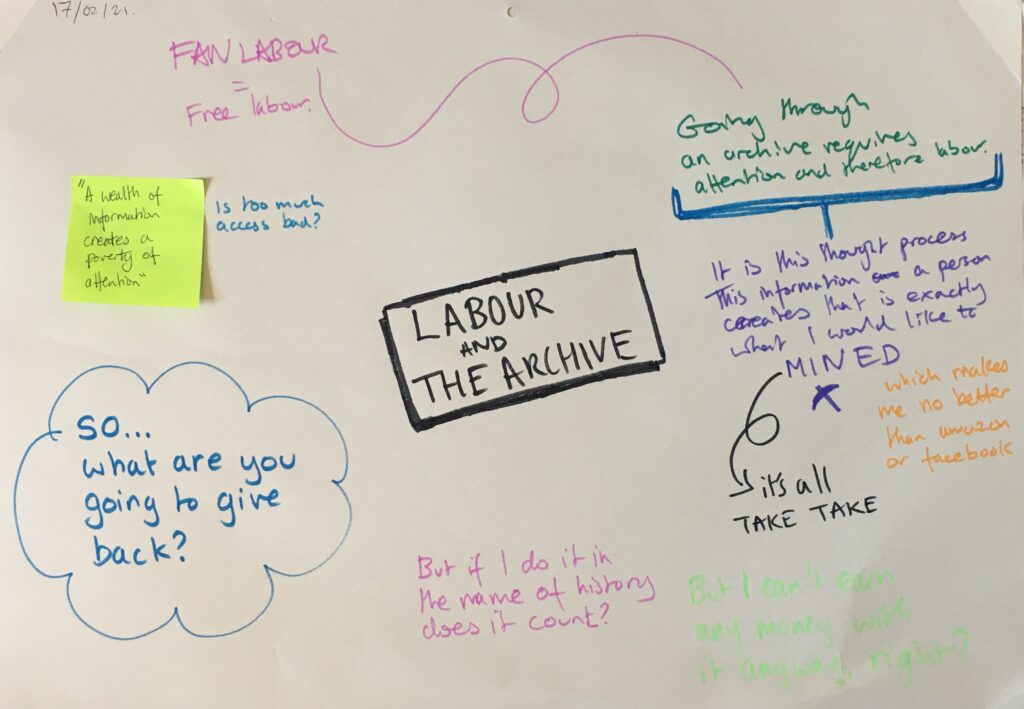 17/02/21.
FAN LABOUR
=
Free labour.
Going through
an archive requires
attention and therefore labour.
"A wealth of
information
creates a
poverty of
attention"
Is too much
access bad?
It is this thought process
This information a person
creates that is exactly
what I would like to
MINED
which makes
me no better
than amazon
or facebook
LABOUR
AND
THE ARCHIVE
it's all
TAKE TAKE
SO...
what are you
going to give
back?
But if I do it in
the name of history
does it count?
But I can't earn
any money with
it anyway, right?